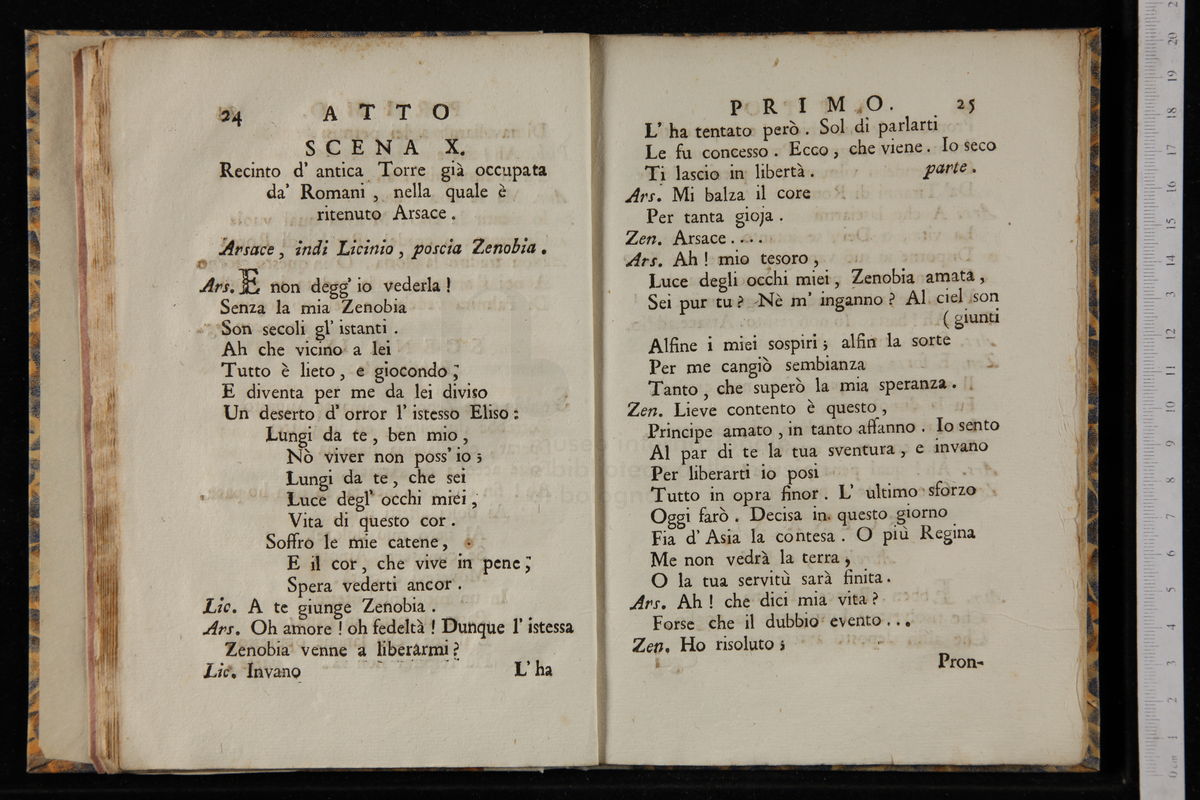 24 ATTO
SCENA X.
Recinto d' antica Torre già occupata
da' Romani , nella quale è
ritenuto Arsace .
Arsace , indi Licinio , poscia Zenobia .
Ars. E non degg' io vederla !
Senza la mia Zenobia
Son secoli gl' istanti .
Ah che vicino a lei
Tutto è lieto , e giocondo ;
E diventa per me da lei diviso
Un deserto d' orror l' istesso Eliso :
Lungi da te , ben mio ,
Nò viver non poss' io ;
Lungi da te , che sei
Luce degl' occhi miei ,
Vita di questo cor .
Soffro le mie catene ,
E il cor , che vive in pene ;
Spera vederti ancor .
Lic. A te giunge Zenobia .
Ars. Oh amore ! oh fedeltà ! Dunque l' istessa
Zenobia venne a liberarmi ?
Lic. Invano L' ha
PRIMO. 25
L' ha tentato però . Sol di parlarti
Le fu concesso . Ecco , che viene . Io seco
Ti lascio in libertà . parte .
Ars. Mi balza il core
Per tanta gioja .
Zen. Arsace ....
Ars. Ah ! mio tesoro ,
Luce degli occhi miei , Zenobia amata ,
Sei pur tu ? Nè m' inganno ? Al ciel son
( giunti
Alfine i miei sospiri ; alfin la sorte
Per me cangiò sembianza
Tanto , che superò la mia speranza .
Zen. Lieve contento è questo ,
Principe amato , in tanto affanno . Io sento
Al par di te la tua sventura , e invano
Per liberarti io posi
Tutto in opra finor . L' ultimo sforzo
Oggi farò . Decisa in questo giorno
Fia d' Asia la contesa . O più Regina
Me non vedrà la terra ,
O la tua servitù sarà finita .
Ars. Ah ! che dici mia vita ?
Forse che il dubbio evento ...
Zen. Ho risoluto ;
Pron-